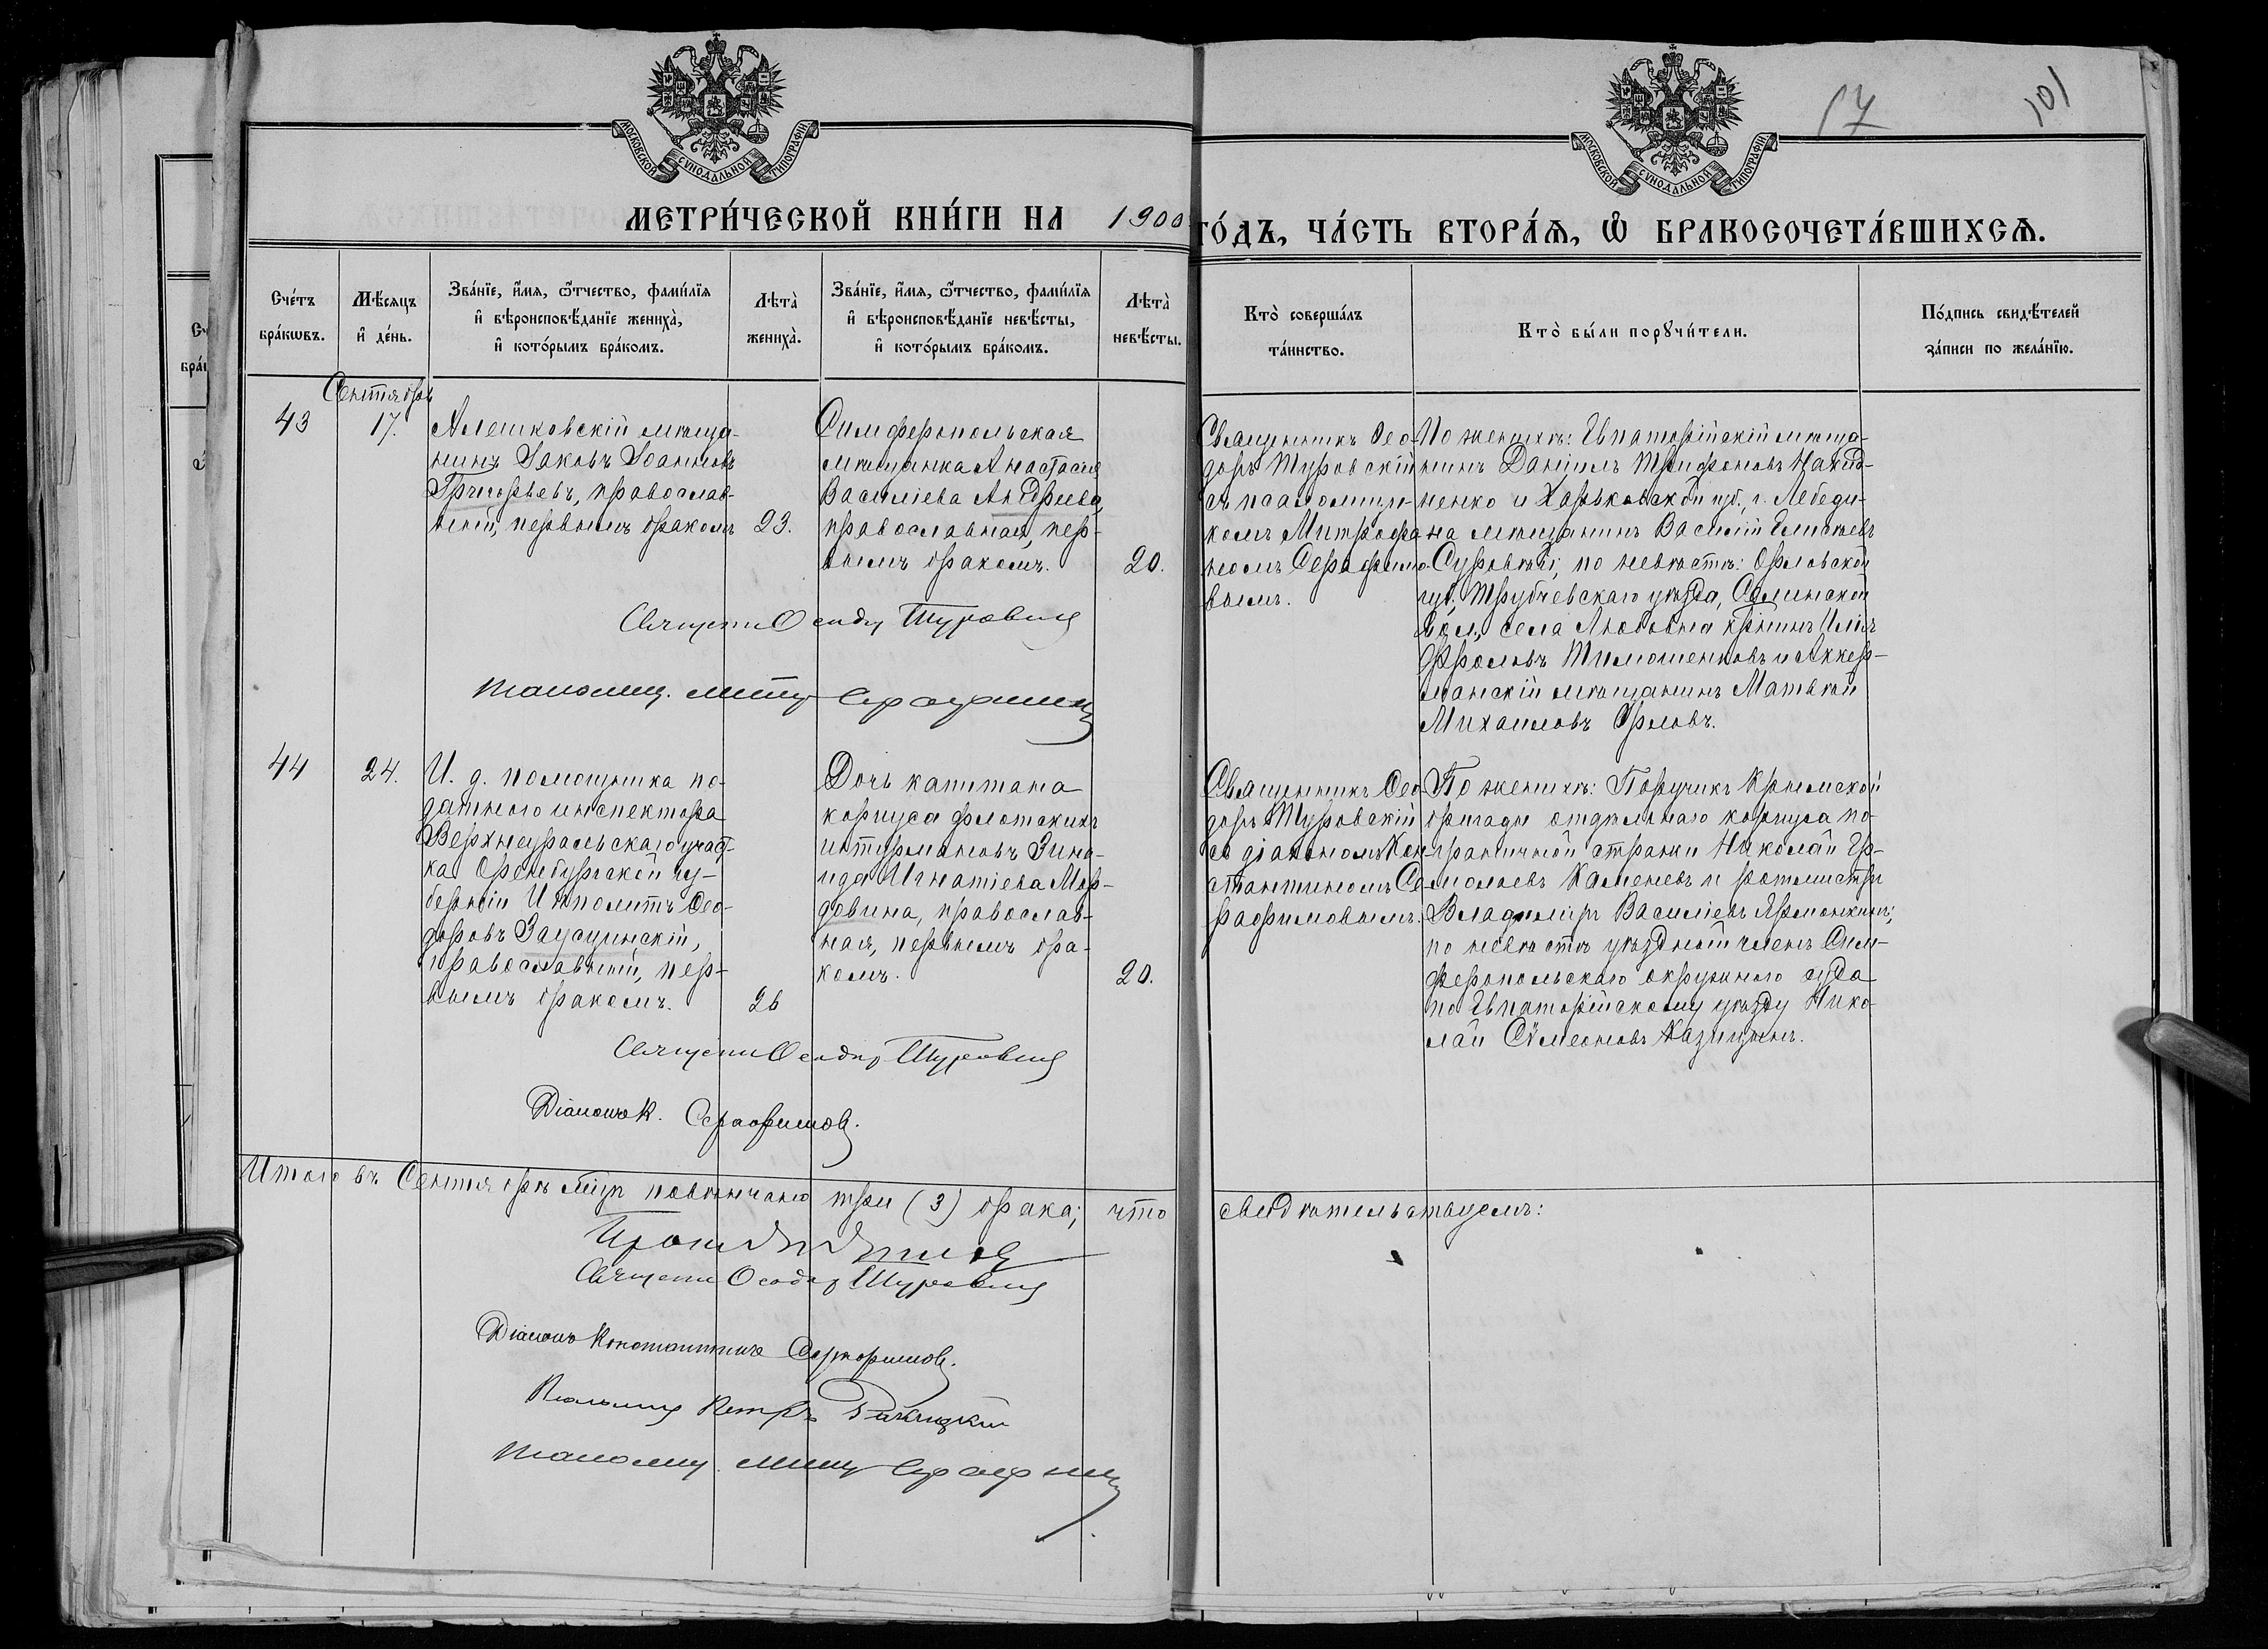 МОСКОВСКОЙ СУНОДАЛЬНОЙ ТИПОГРАФІИ.
МОСКОВСКОЙ СУНОДАЛЬНОЙ ТИПОГРАФІИ.
17
101
МЕТРИ́ЧЕСКОЙ КНИ́ГИ НА 1900
ГО́ДЪ, ЧА́СТЬ ВТОРА́Ѧ, Ѽ БРАКОСОЧЕТА́ВШИХСѦ.
Сче́тъ
бра́кѡвъ.
Мѣ́сяцъ
и҆ де́нь.
Зва́нїе, и҆́мя, ѻ҆́тчество, фами́лїя
и҆ вѣроисповѣ́данїе жениха̀,
и҆ кото́рымъ бра́комъ.
Лѣта̀
жениха̀.
Зва́нїе, и҆́мя, ѻ҆́тчество, фами́лїя
и҆ вѣроисповѣ́данїе невѣ́сты,
и҆ кото́рымъ бра́комъ.
Лѣта̀
невѣ́сты.
Кто̀ соверша́лъ
та́инство.
Кто̀ бы́ли порꙋчи́тели.
По́дпись свидѣ́телей
за́писи по жела́нїю.
Сентябрь
43
17.
Алешковскій мѣща-
нинъ Іаковъ Іоанновъ
Григорьевъ, православ-
ный, первымъ бракомъ
23.
Симферопольская
мѣщанка Анастасія
Василіева Андреева,
православная, пер-
вымъ бракомъ.
20.
Священникъ Ѳео-
доръ Туровскій
съ псаломщи-
комъ Митрофа-
номъ Серафимо-
вымъ.
По женихѣ: Евпаторійскій мѣща-
нинъ Даніилъ Трифоновъ
ненко и Харьковской губ., г. Лебеди-
на мѣщанинъ Василій Елисѣевъ
по невѣстѣ: Орловской
губ., Трубчевскаго уѣзда, Селинской
вол., села Любовна крѣнинъ Илія
Фроловъ Тимошенковъ и Аккер-
манскій мѣщанинъ Матвѣй
Михаиловъ Орловъ.
Священ Ѳеодор Туровскій
Псаломщ. Митр Серафимов
44
24.
И. д. помощника по-
датнаго инспектора
Верхнеуральскаго участ-
ка Оренбургской гу-
берніи Ипполитъ Ѳео-
доровъ Заусцинскій,
православный, пер-
вымъ бракомъ.
26
Дочь капитана
корпуса флотскихъ
штурмановъ Зина-
ида Игнатіева Мор-
довина, православ-
ная, первымъ бра-
комъ.
20.
Священникъ Ѳео-
доръ Туровскій
съ діакономъ Кон-
стантиномъ Се-
рафимовымъ.
По женихѣ: Поручикъ Крымской
бригады отдѣльнаго корпуса по-
граничной стражи Николай Ер-
молаевъ Каменевъ и ротмистръ
Владиміръ Василіевъ Ярмонкинъ;
по невѣстѣ уѣздный членъ Сим-
феропольскаго окружнаго суда
по Евпаторійскому уѣзду Нико-
лай Сѵмеоновъ Казицынъ.
Священ Ѳеодор Туровскій
Діаконъ К. Серафимовъ.
Итого въ Сентябрѣ мѣцѣ повѣнчано три (3) брака; что свидѣтельствуемъ:
Священ Ѳеодор Туровскій
Діаконъ Константинъ Серафимовъ.
Псаломщ Петръ
Псаломщ. Митр Серафимов